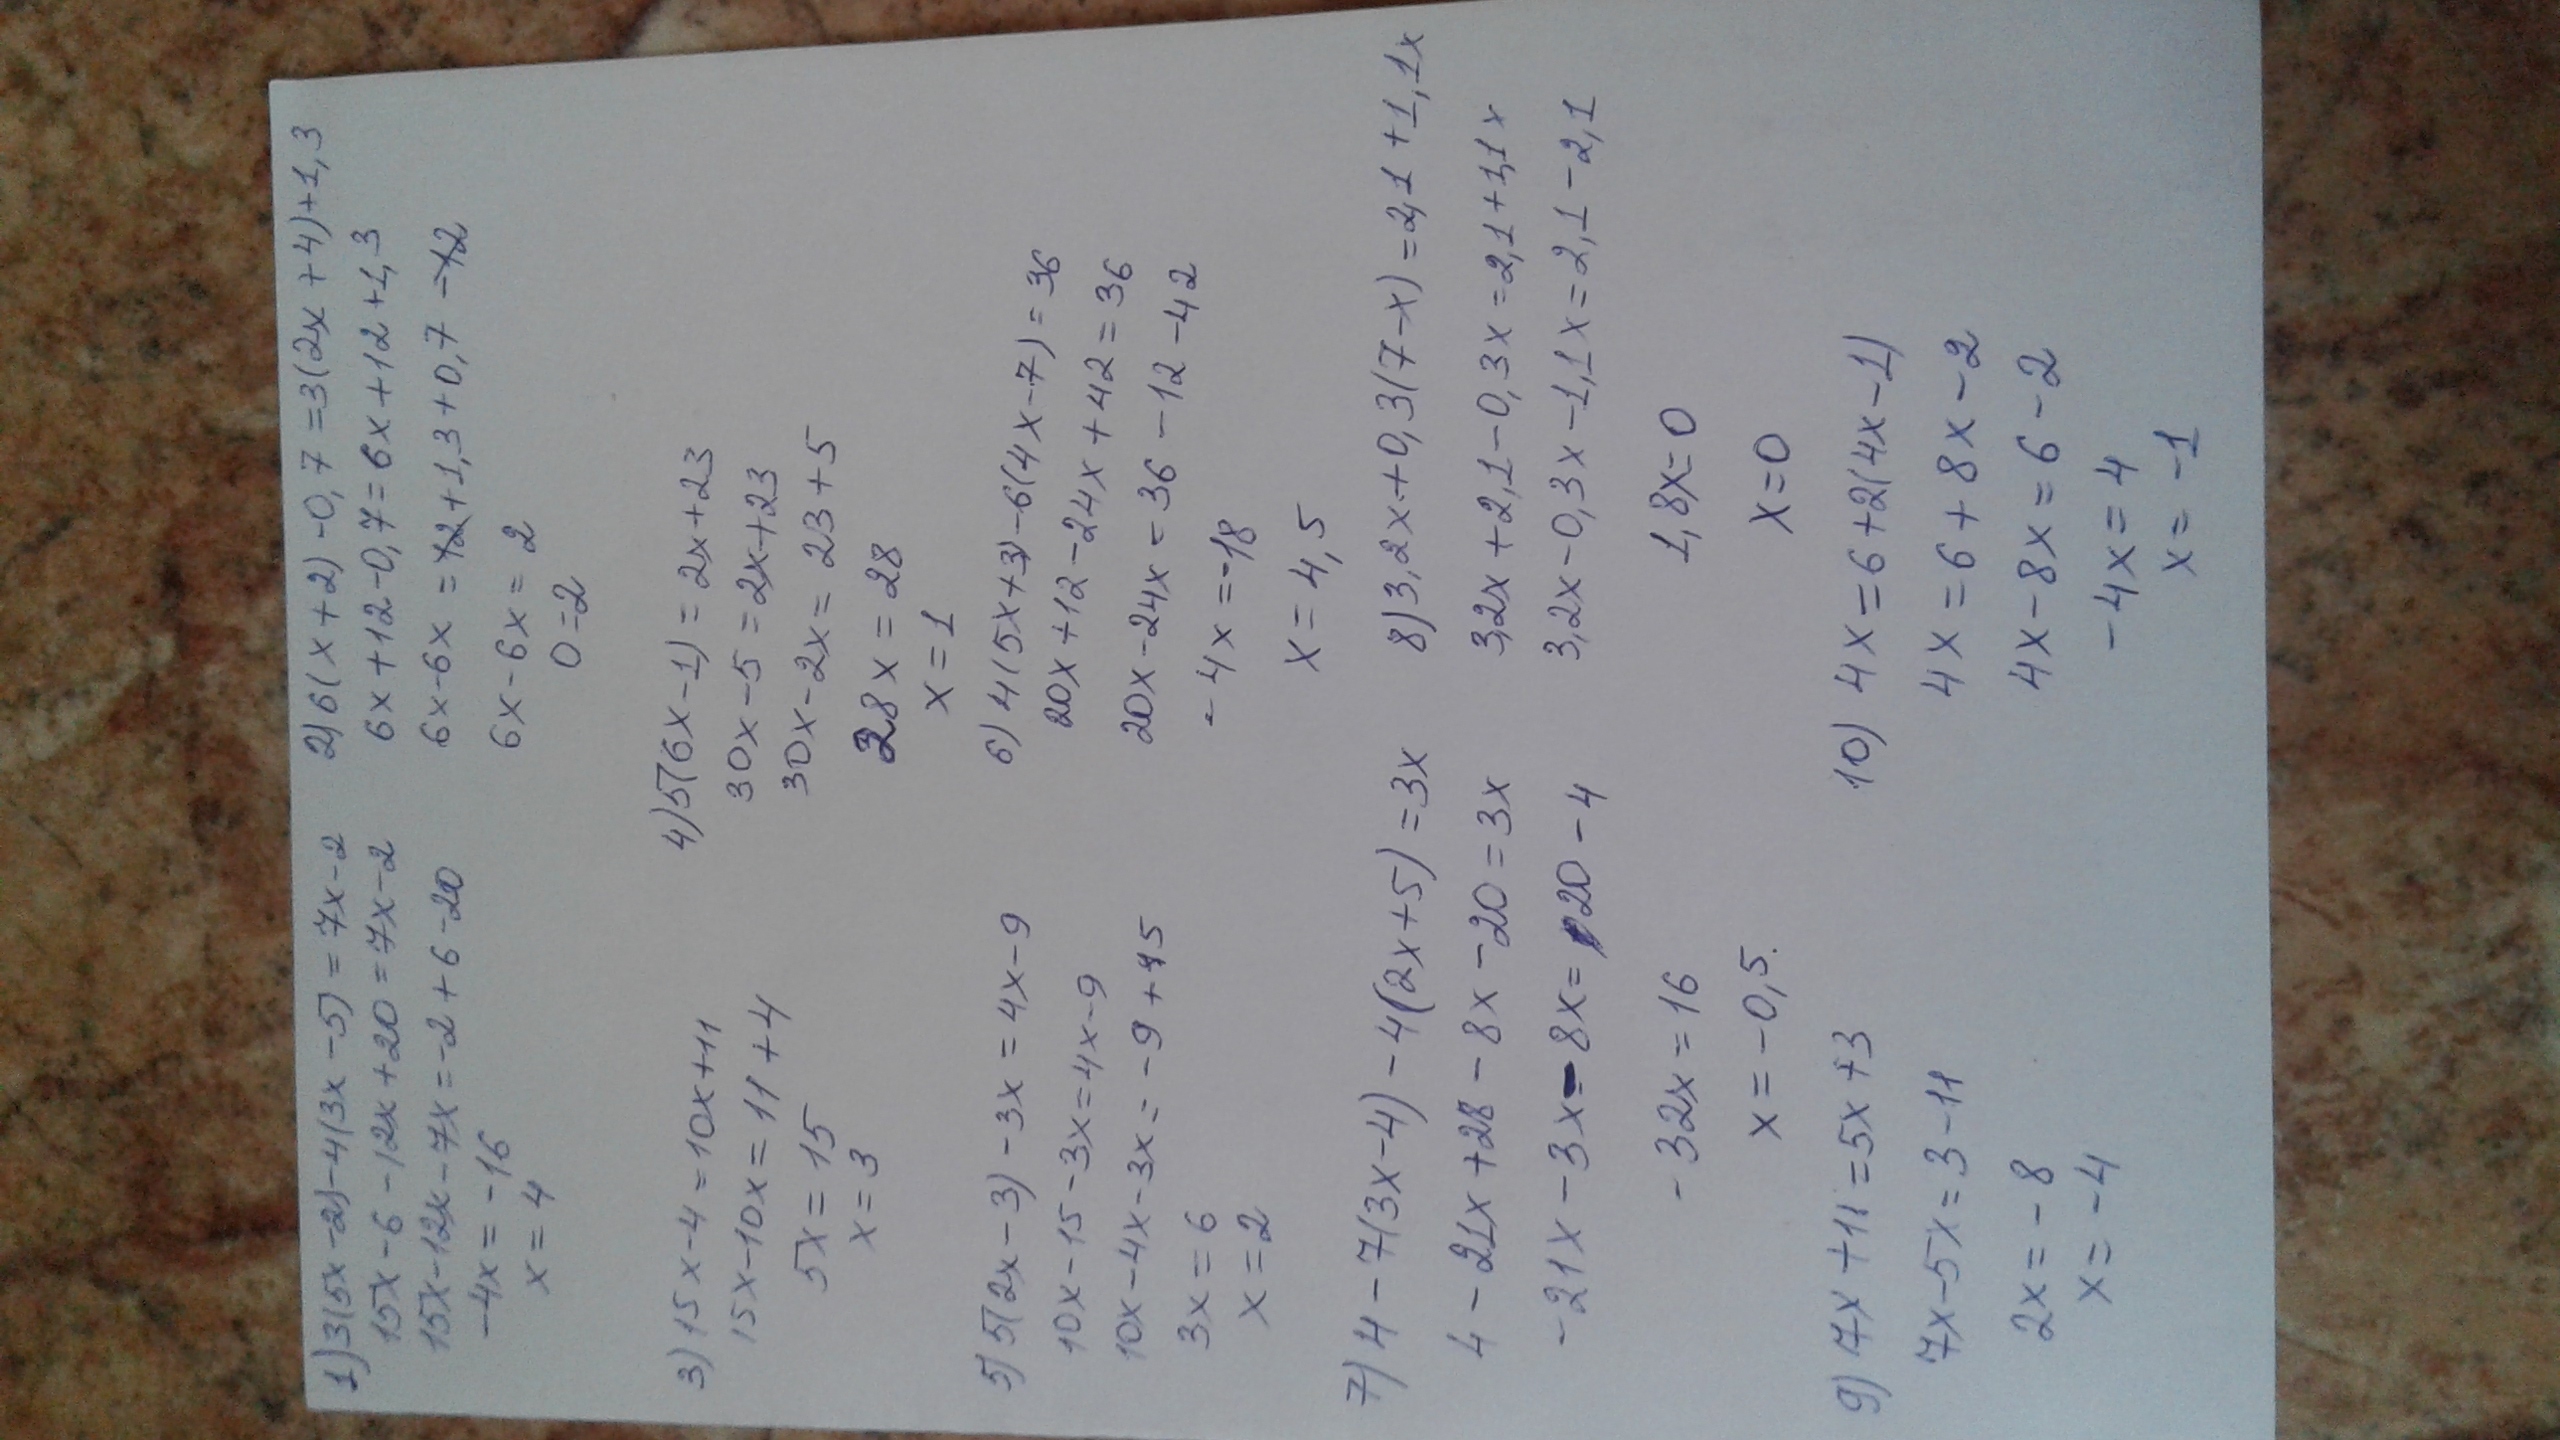 1) 3(5x-2)-4(3x-5)=7x-2
15x-6-12x+20=7x-2
15x-12x-7x=-2+6-20
-4x=-16
x=4
2) 6(x+2)-0,7=3(2x+4)+1,3
6x+12-0,7=6x+12+1,3
6x-6x=12+1,3+0,7-12
6x-6x=2
0=2
3) 15x-4=10x+11
15x-10x=11+4
5x=15
x=3
4) 5(6x-1)=2x+23
30x-5=2x+23
30x-2x=23+5
28x=28
x=1
5) 5(2x-3)-3x=4x-9
10x-15-3x=4x-9
10x-4x-3x=-9+15
3x=6
x=2
6) 4(5x+3)-6(4x-7)=36
20x+12-24x+42=36
20x-24x=36-12-42
-4x=-18
x=4,5
7) 4-7(3x-4)-4(2x+5)=3x
4-21x+28-8x-20=3x
-21x-3x-8x=20-4
-32x=16
x=-0,5.
8) 3,2x+0,3(7-x)=2,1+1,1x
3,2x+2,1-0,3x=2,1+1,1x
3,2x-0,3x-1,1x=2,1-2,1
1,8x=0
x=0
9) 7x+11=5x+3
7x-5x=3-11
2x=-8
x=-4
10) 4x=6+2(4x-1)
4x=6+8x-2
4x-8x=6-2
-4x=4
x=-1